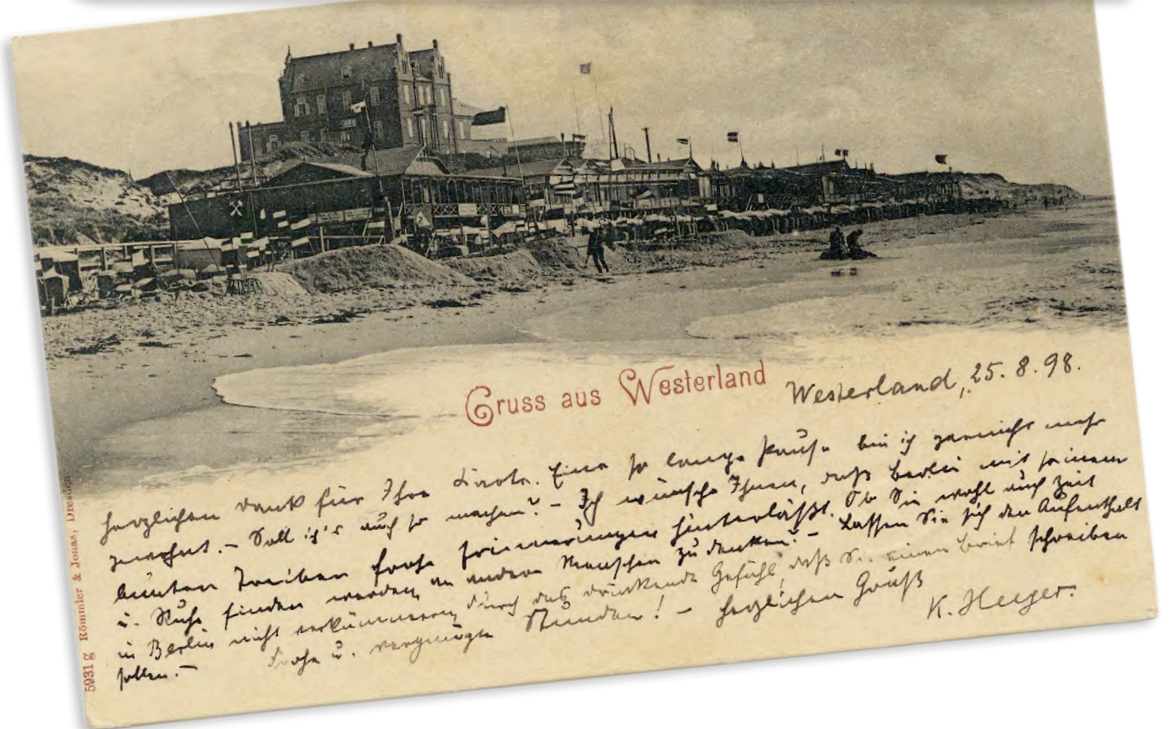 Gruss aus Westerland
Westerland, 25.8.98.
Herzlichen Dank für Ihre Karte. Eine so lange Pause bin ich garnicht mehr
gewohnt. – Soll ich's auch so machen? – Ich wünsche Ihnen, daß Berlin mit seinem
bunten Treiben frohe Erinnerungen hinterläßt. Ob Sie wohl auch Zeit
u. Ruhe finden werden, an andere Menschen zu denken? – Lassen Sie sich den Aufenthalt
in Berlin nicht verkümmern durch das drückende Gefühl, daß Sie einen Brief schreiben
sollen. – Frohe u. vergnügte Stunden! – Herzlichen Gruß
K.
5931 g Römmler & Jonas, Dresden